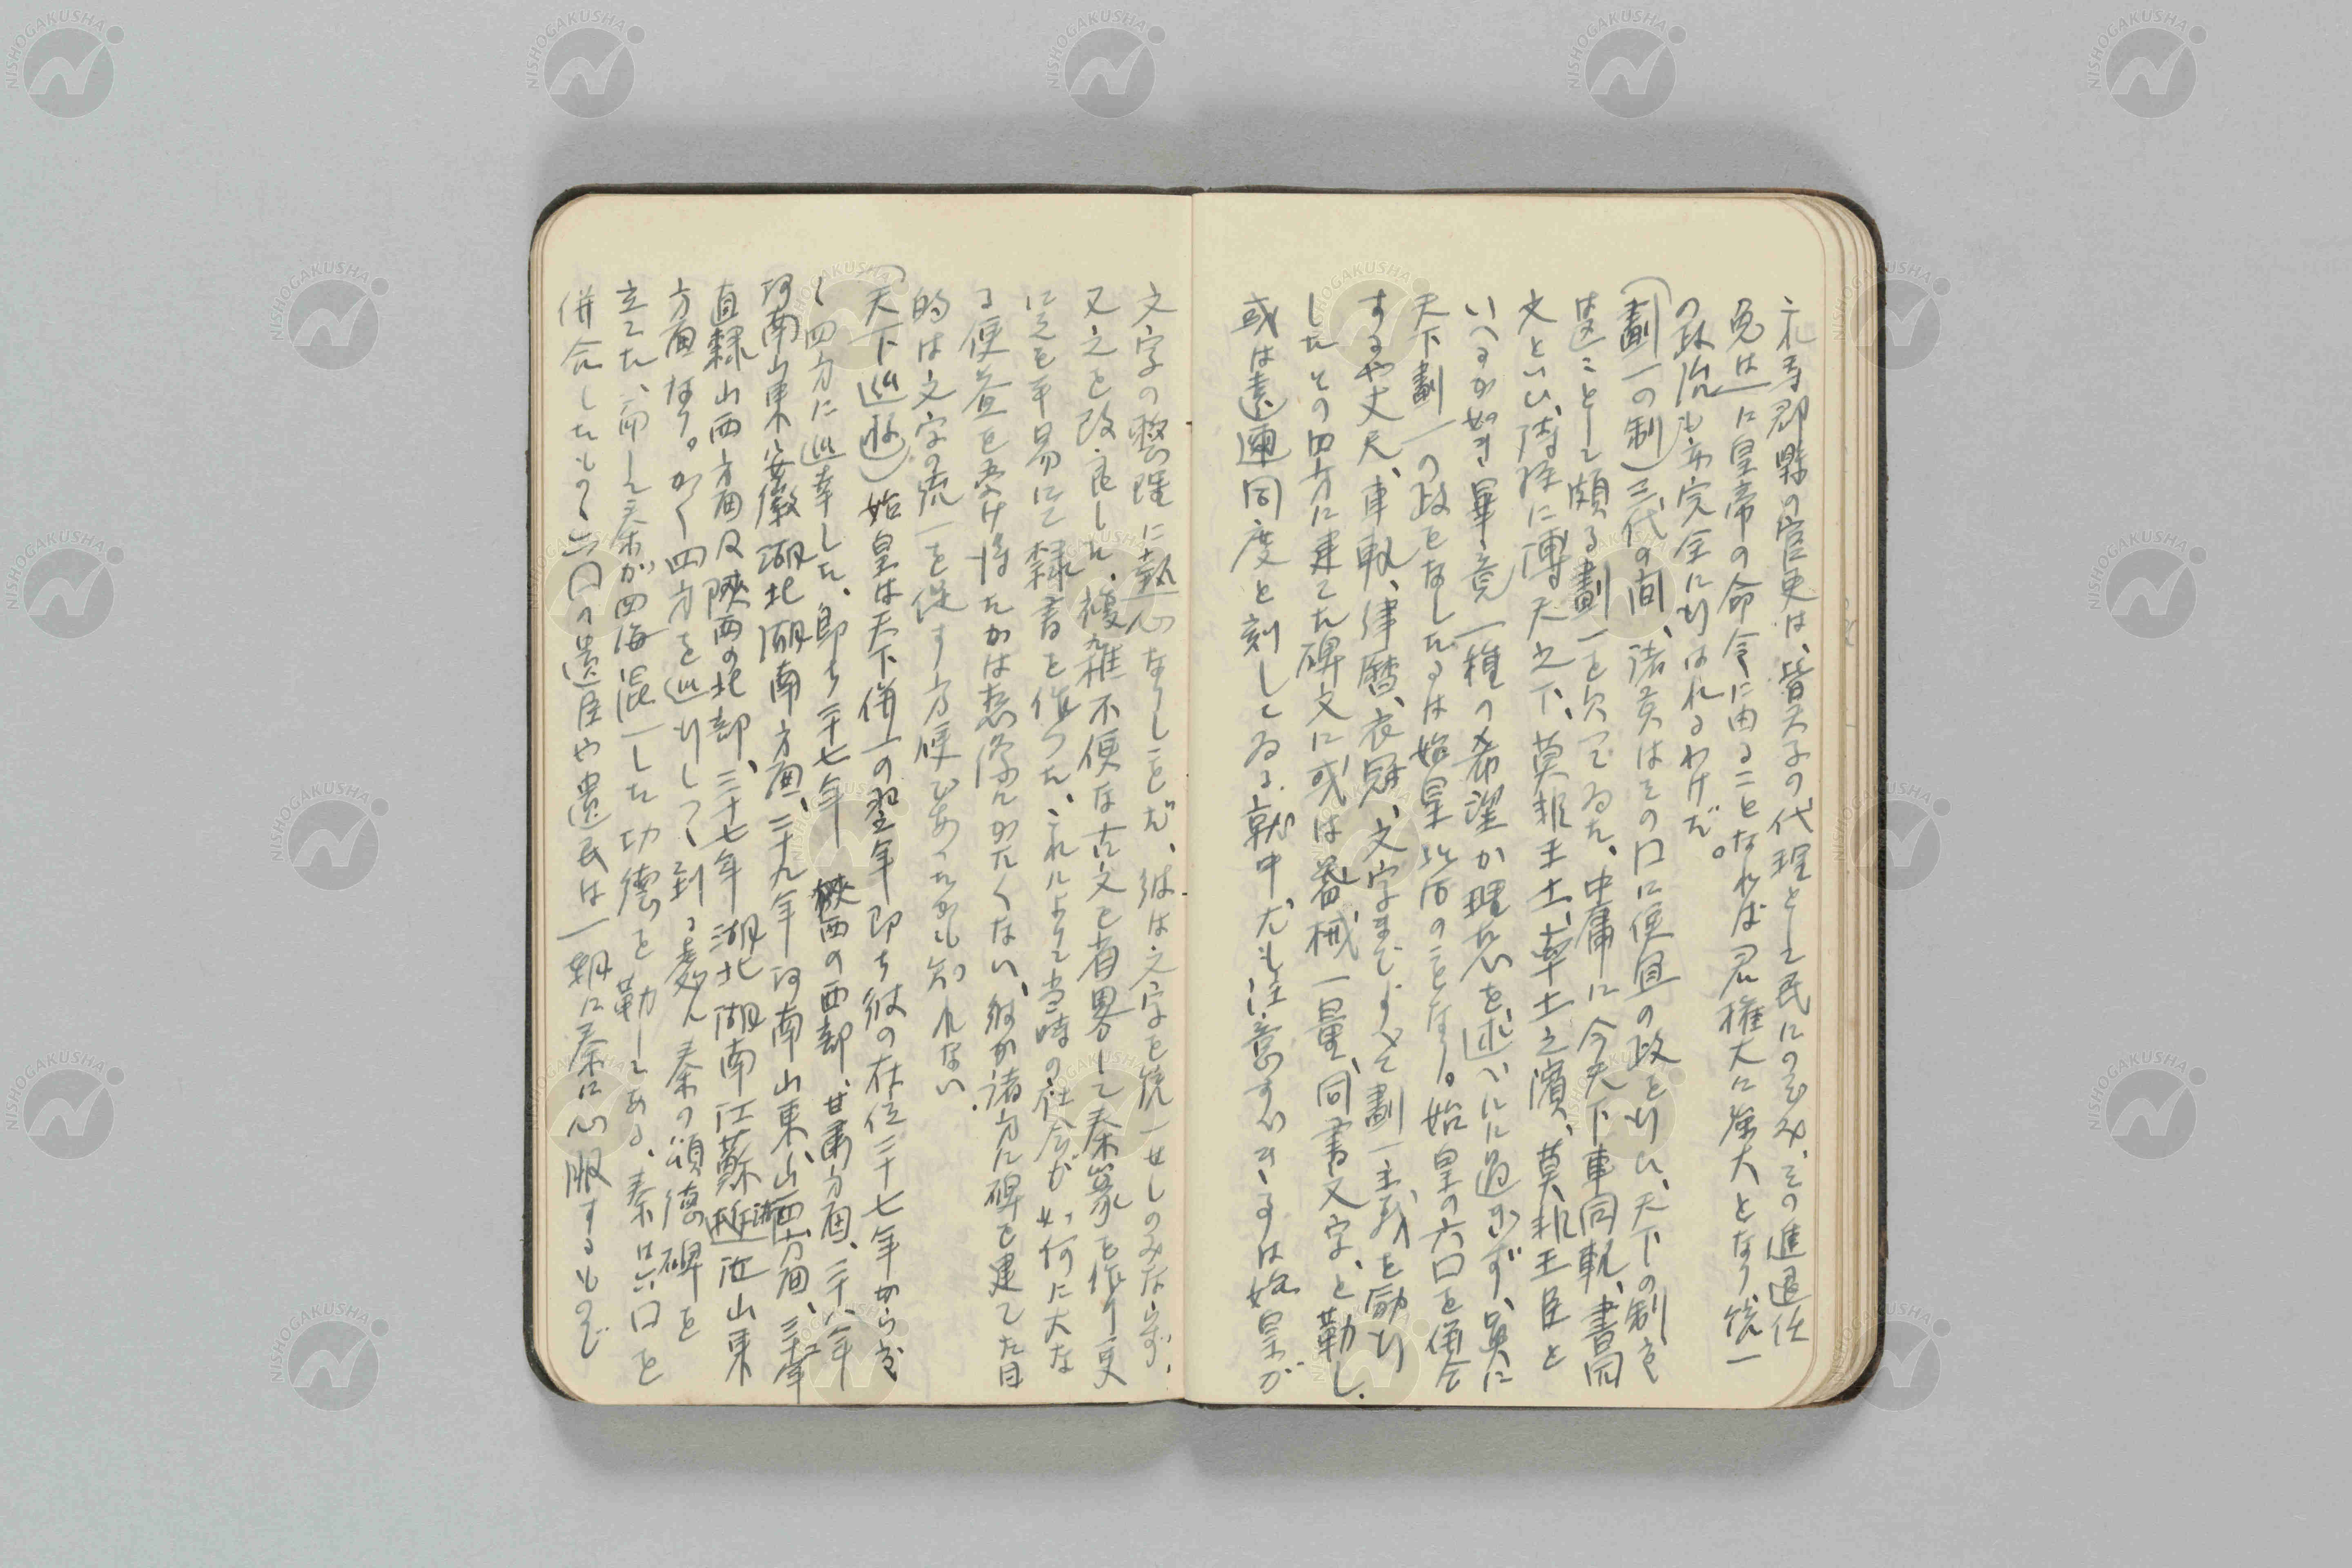 これ等郡縣の官吏は、皆天子の代理として民にのぞみ、その進退任
免は一に皇帝の命令に由ることなれば君権大に強大となり統一
の政治も亦完全に行はれるわけだ。
(劃一の制)三代の間、諸矦はその口に便宜の政を行ひ、天下の制を
は区ことして頗る劃一を欠つてゐた。中庸に今天下車同軌、書同
文といひ、詩経に溥天之下、莫非王土、率土之濱、莫非王臣と
いへるが如き畢竟一種の希望か理想を述べしに過きず、実に
天下劃一の政をなしたるは始皇以后のことなり。始皇の六口を併合
するや丈尺、車軌、律暦、衣冠、文字まですべて劃一主義を励行
したその四方に建てた碑文に或は器械一量、同書文字、と勒し、
或は遠邇同度と刻してゐる就中尤も注意すべきは始皇が
文字の整理に熱心なりしことだ、彼は文字を統一せしのみならず、
又之を改良した、複雑不便な古文を省畧して秦篆を作り更
に之を平易にて隷書を作つた、これによりて当時の社会が如何に大な
る便益を受け得たかは想像にかたくない、彼が諸方に碑を建てた目
的は文字の統一を促す方便であつたかも知れない.
(天下巡遊)始皇は天下併一の翌年即ち彼の在位二十七年から
く四方に巡幸した、即ち二十七年陝西の西部、甘粛方面、二十八年
河南山東、安徽湖北湖南方面、二十九年河南山東、山西方面、三十二年
直隷山西方面及陝西の北部、三十七年湖北湖南江蘇浙江山東
方面なり。かく四方を巡行して、到る處に秦の頌徳碑を
立てた、而して秦が四海混一した功徳を勒してある、秦は六口を
併合したもの丶六口の遺臣や遺民は一朝に秦に心服するもので